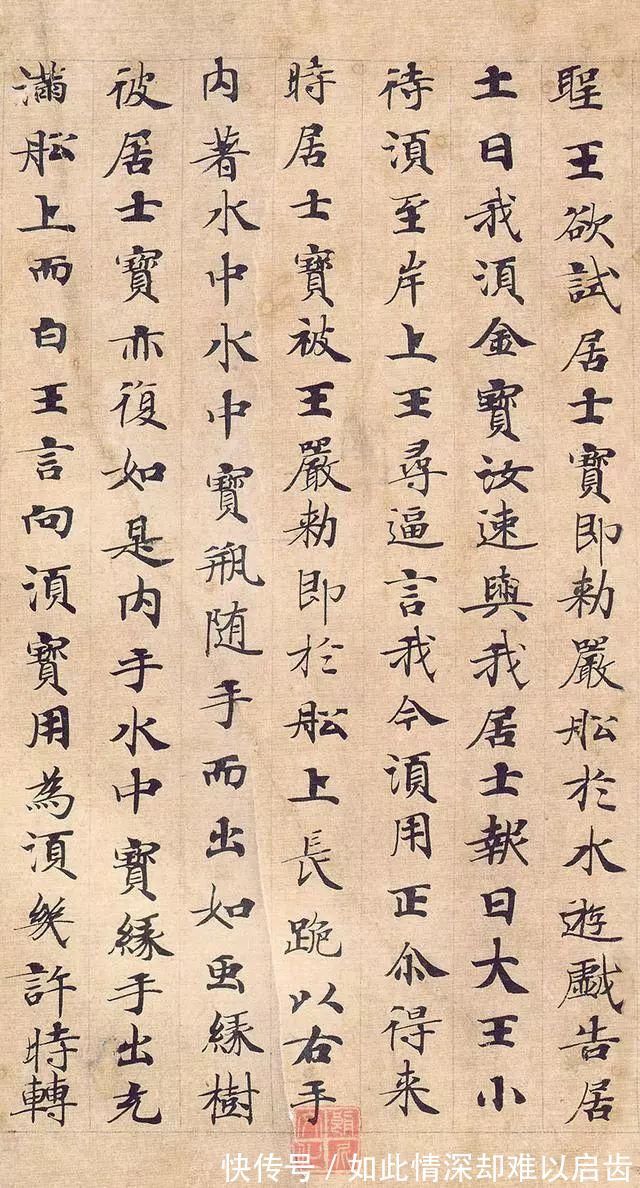 聖王欲試居士寶即勑嚴舩於水遊戯告居
士曰我湏金寶汝速與我居士報曰大王小
待湏至岸上王尋逼言我今湏用正尒得来
時居士寶被王嚴勑即於舩上長跪以右手
内著水中水中寶瓶随手而出如虫緣樹
彼居士寶亦復如是内手水中寶緣手出充
滿舩上而白王言向湏寶用為湏㡬許時轉
快传号/如此情深却难以启齿